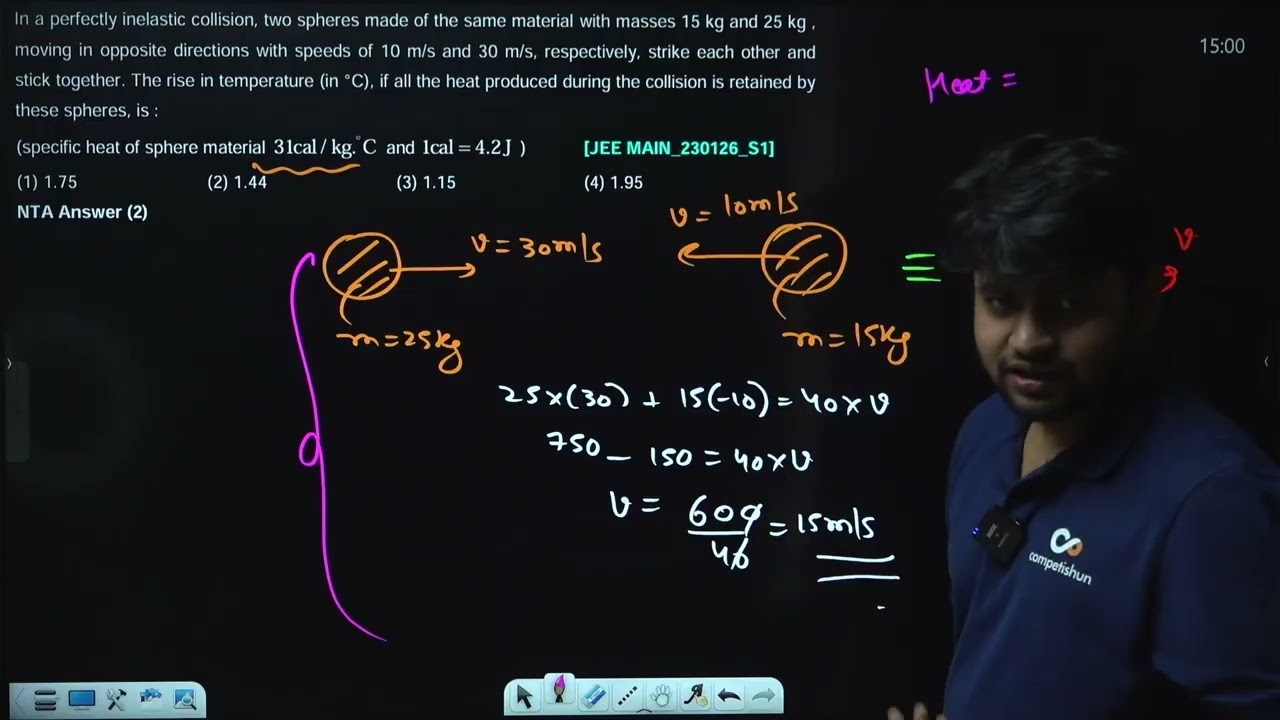 In a perfectly inelastic collision, two spheres made of the same material with masses 15 kg and 25 kg ,
moving in opposite directions with speeds of 10 m/s and 30 m/s, respectively, strike each other and
stick together. The rise in temperature (in °C), if all the heat produced during the collision is retained by
these spheres, is :
(specific heat of sphere material 31cal / kg.°C and 1cal = 4.2J ) [JEE MAIN_230126_S1]
(1) 1.75 (2) 1.44 (3) 1.15 (4) 1.95
NTA Answer (2)
15:00
Heat =
v = 30m/s
v = 10m/s
v
m = 25kg
m = 15kg
25×(30) + 15(-10) = 40×v
750 - 150 = 40×v
v = 600/40 = 15m/s
competishun